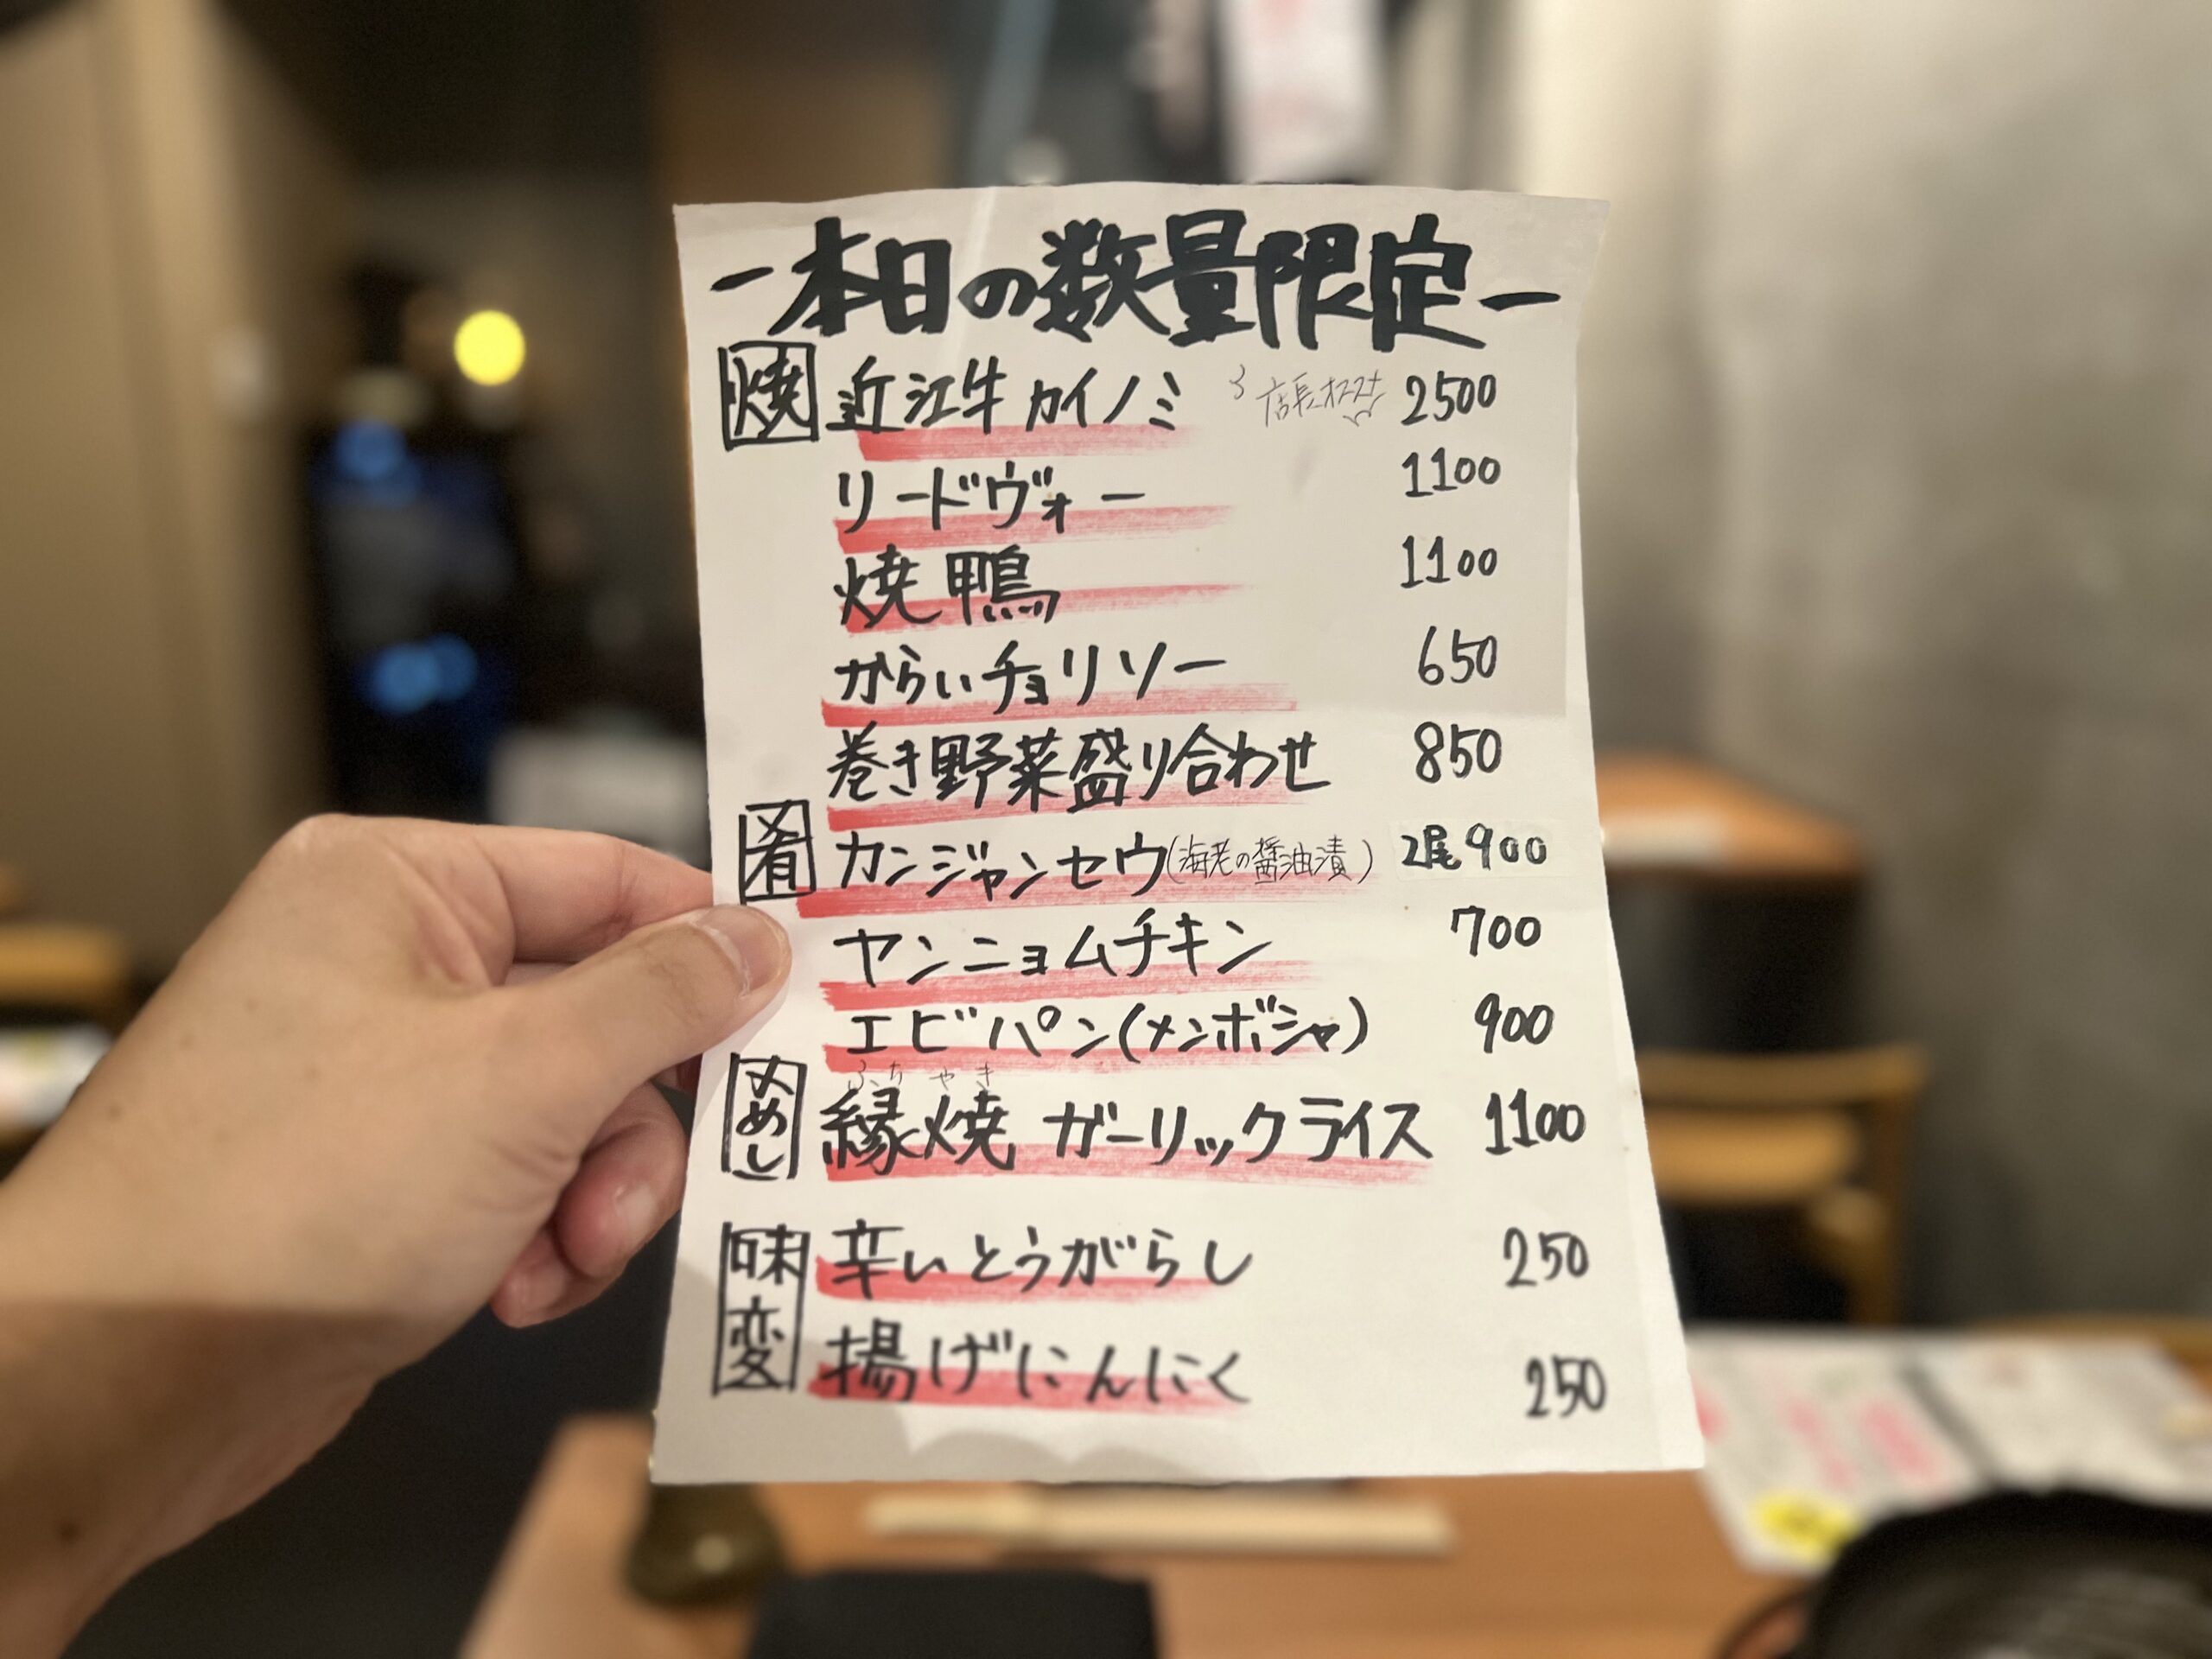 -本日の数量限定-
焼 近江牛カイノミ 店長オススメ 2500
リードヴォー 1100
焼鴨 1100
からいチョリソー 650
巻き野菜盛り合わせ 850
肴 カンジャンセウ(海老の醤油漬) 2尾 900
ヤンニョムチキン 700
エビパン(メンボシャ) 900
ふちやき
〆めし 縁焼 ガーリックライス 1100
味変 辛いとうがらし 250
揚げにんにく 250